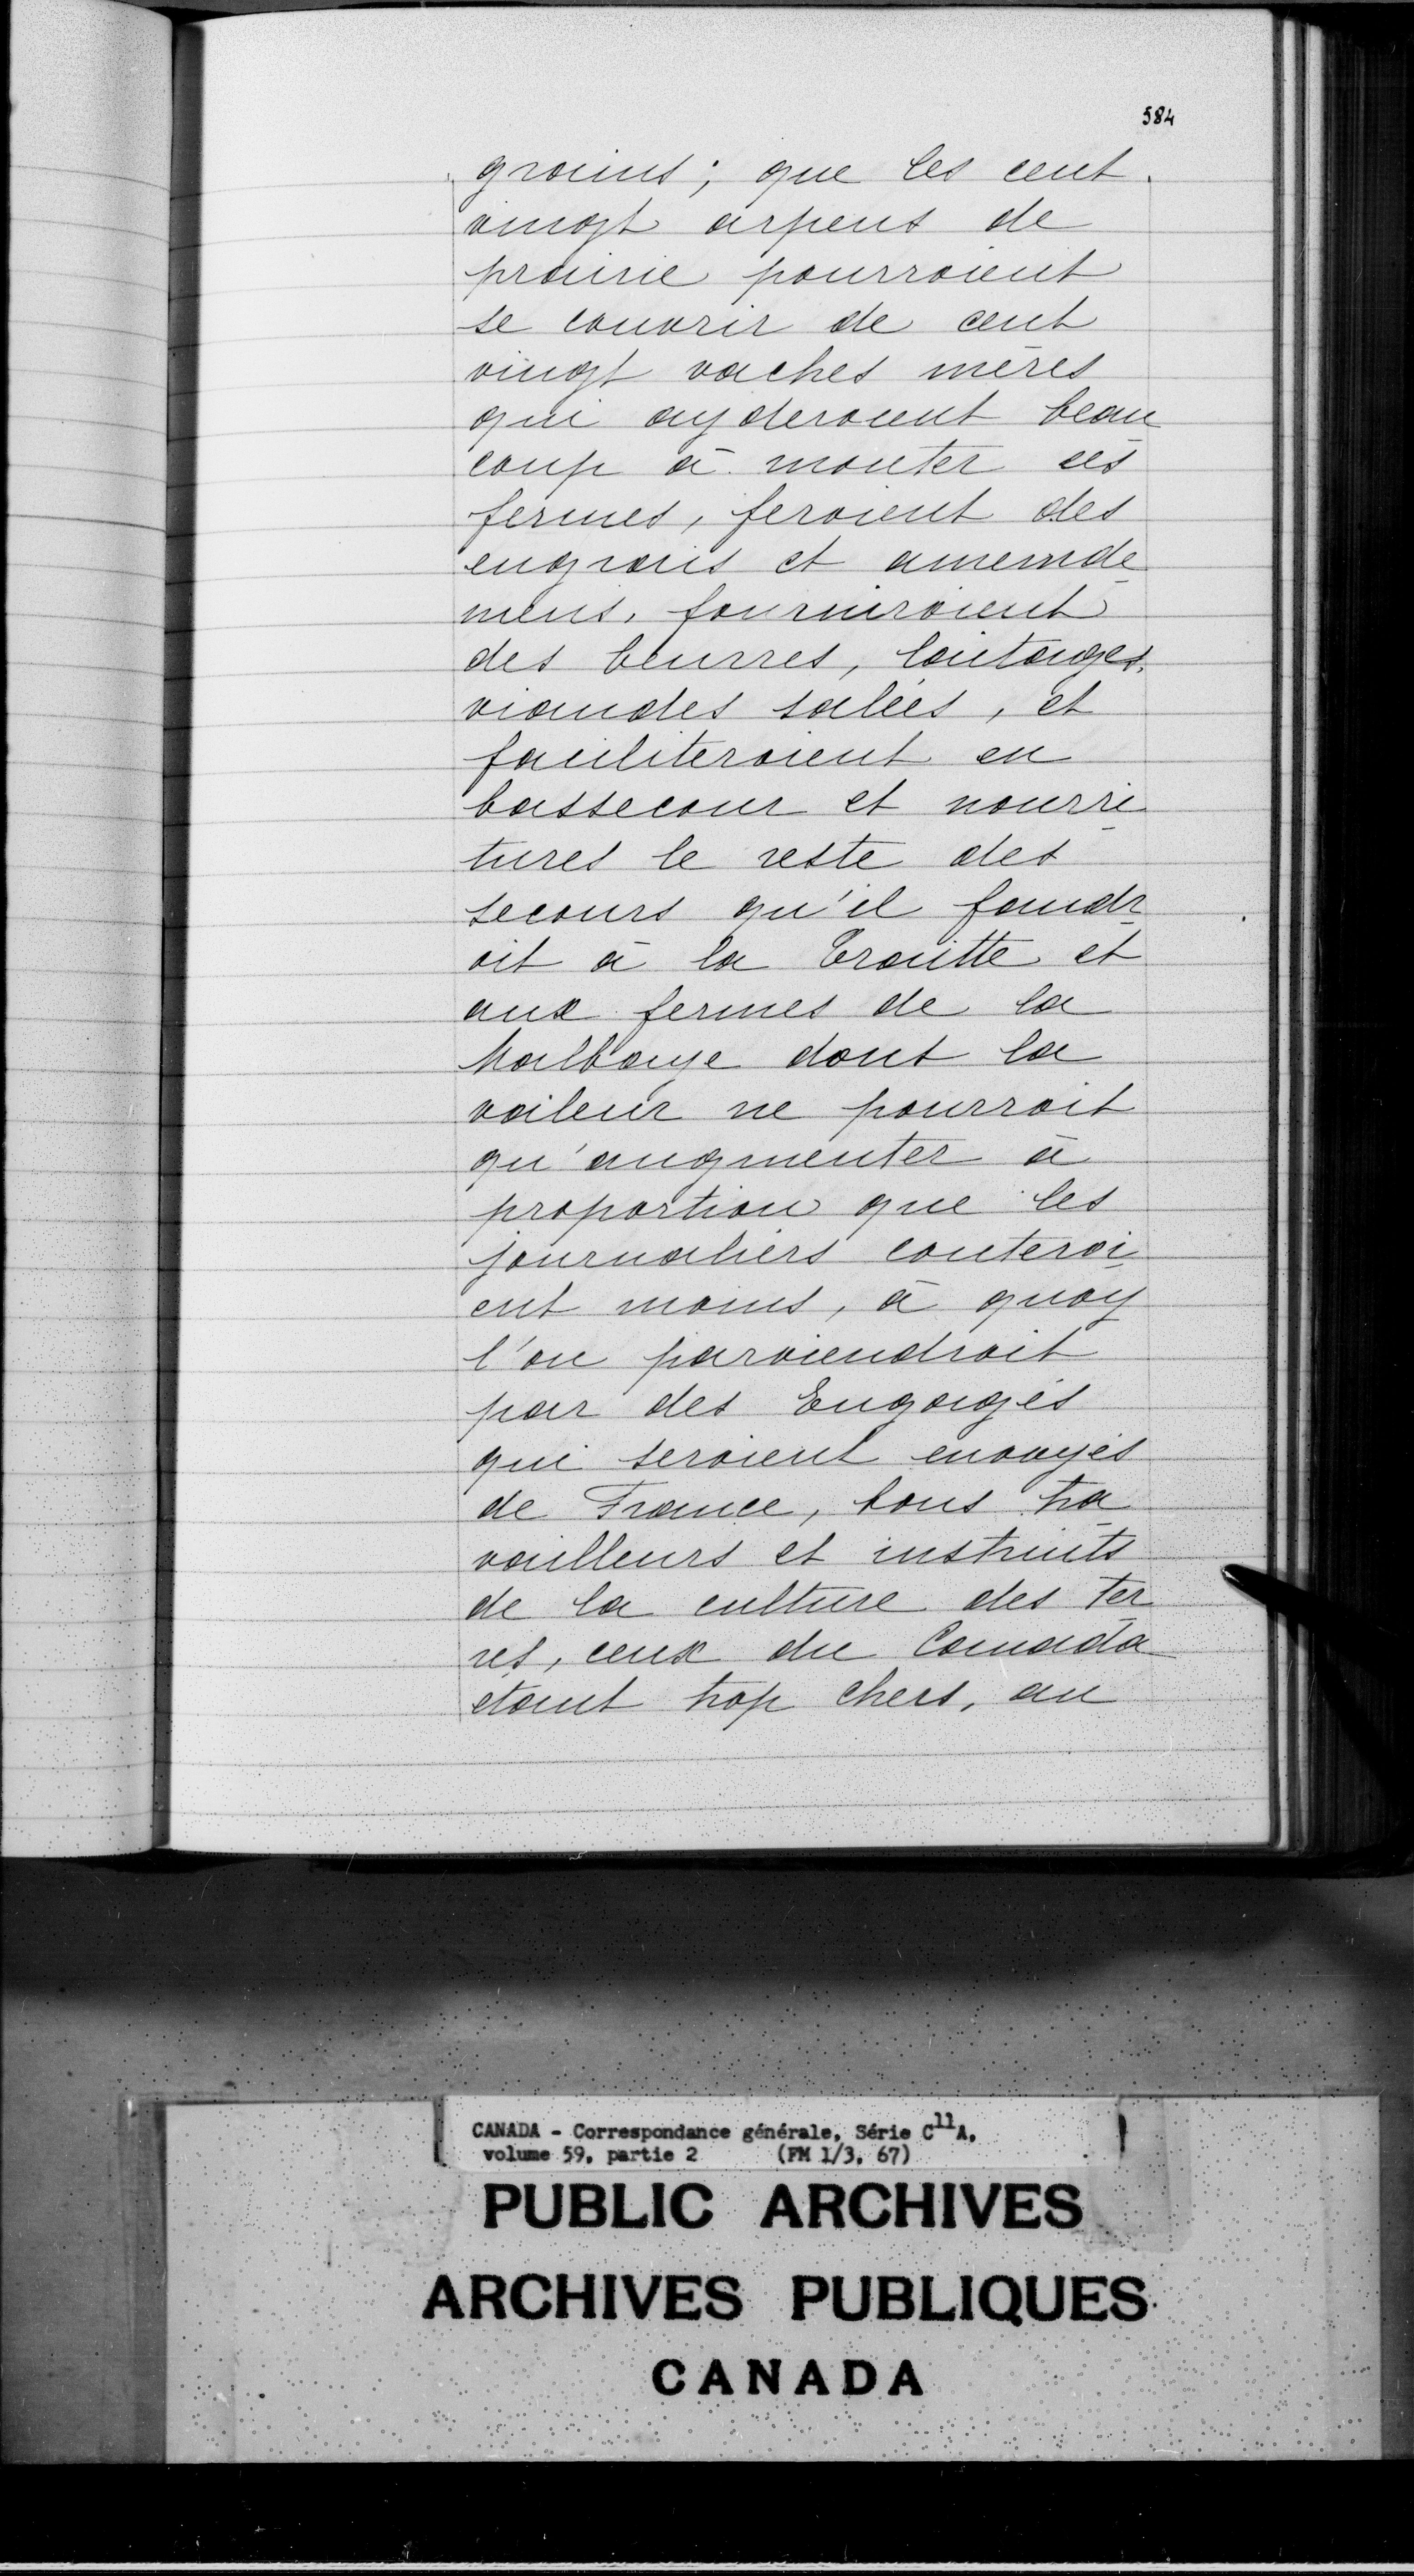 584
grains; que les cent
vingt arpens de
prairie pourroient
se couvrir de cent
vingt vaches mères
qui ayderoient beau
coup à monter ces
fermes, feroient des
engrais et amemde
mens, fourniroient
des beurres, laitages,
viandes salées, et
faciliteroient en
bassecour et nourri
tures le reste des
secours qu'il faudr
oit à la Traitte et
aux fermes de la
Malbaye dont la
valeur ne pourroit
qu'augmenter à
proportion que les
journaliers couteroi
ent moins, à quoy
l'on parviendroit
par des Engagés
qui seroient envoyés
de France, bons tra
vailleurs et instruits
de la culture des ter
res, ceux du Canada
etant trop chers, au
CANADA - Correspondance générale, Série C11A,
volume 59, partie 2 (FM 1/3, 67)
PUBLIC ARCHIVES
ARCHIVES PUBLIQUES
CANADA